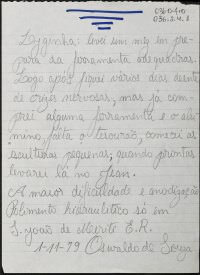 036.0410
036.2.4.1
Lyginha: levei um mês em pre-
para da ferramenta adequadas.
Logo após fiquei vários dias doente
de crises nervosas, mas já com-
prei alguma ferramenta e o alu-
mineo falta o tesourão, comecei as
esculturas pequenas; quando prontas
levarei lá no Jean.
A maior dificuldade e anodização
Polimento hidraulitico só em
S. João de Meriti E.R.
1-11-79 Oswaldo de Souza